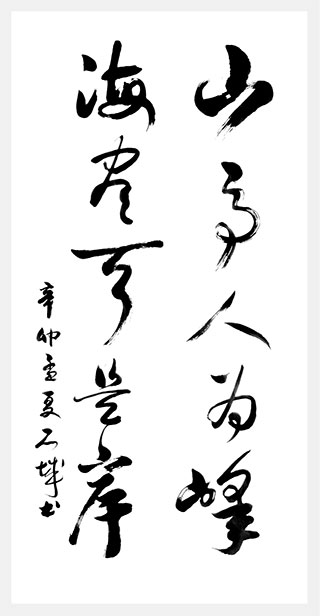 山高人为峰
海尽天是岸
辛卯孟夏石城书